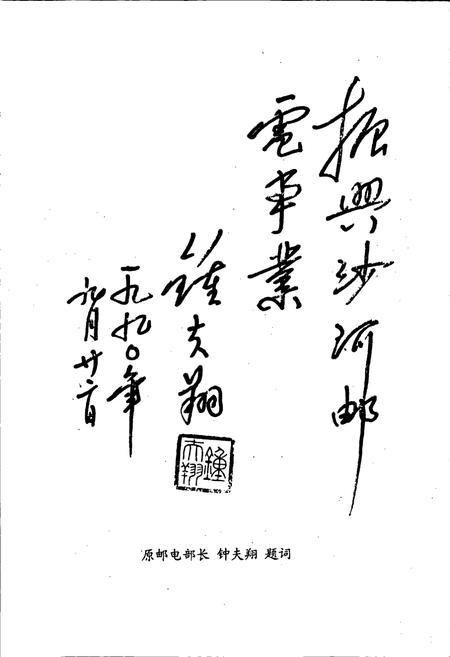 振興沙河郵
電事業
鍾夫翔
一九九〇年
九月廿六日
鍾夫翔
原邮电部长 钟夫翔 题词